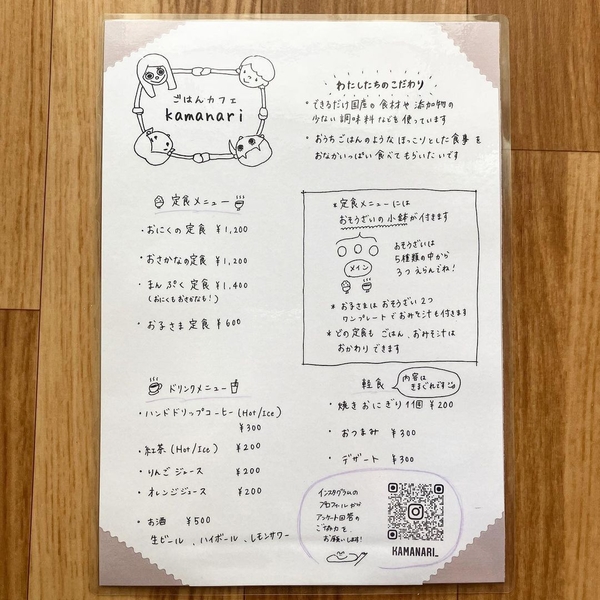 ごはんカフェ
kamanari
わたしたちのこだわり
・できるだけ国産の食材や添加物の
少ない調味料などを使っています
・おうちごはんのような ほっこりとした食事を
おなかいっぱい食べてもらいたいです
定食メニュー
・おにくの定食 ¥1,200
・おさかなの定食 ¥1,200
・まんぷく定食 ¥1,400
(おにくもおさかなも!)
・お子さま定食 ¥600
※定食メニューには
おそうざいの小鉢が付きます
メイン
おそうざいは
5種類の中から
3つえらんでね!
※お子さまはおそうざい2つ
ワンプレートでおみそ汁も付きます
※どの定食も ごはん、おみそ汁は
おかわりできます
ドリンクメニュー
・ハンドドリップコーヒー(Hot/Ice)
¥300
・紅茶(Hot/Ice) ¥200
・りんごジュース ¥200
・オレンジジュース ¥200
・お酒 ¥500
生ビール、ハイボール、レモンサワー
軽食
内容は
きまぐれです
・焼きおにぎり1個 ¥200
・おつまみ ¥300
・デザート ¥300
インスタグラムの
プロフィールから
アンケート回答の
ご協力を
お願いします!
KAMANARI_